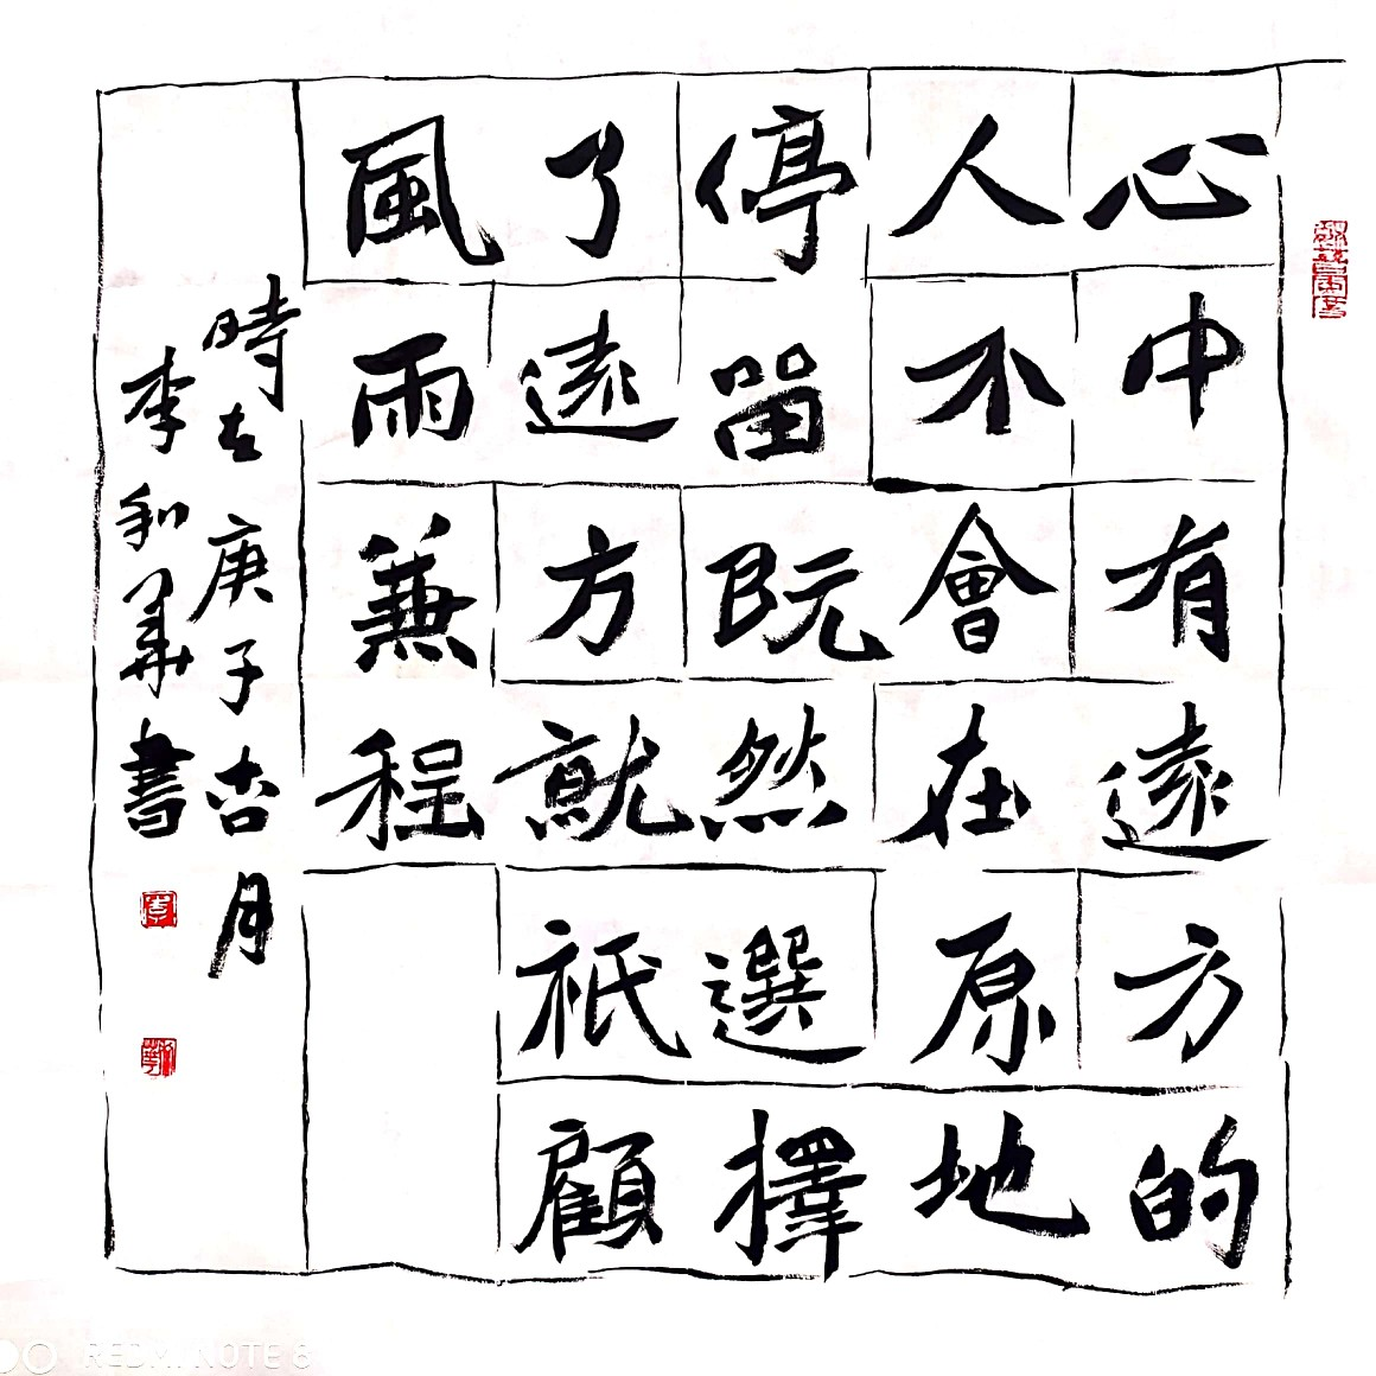 心中有遠方的
人不會在原地
停畱既然選擇
了遠方就祇顧
風雨兼程
時在庚子杏月
李和華書
REDMI NOTE 8